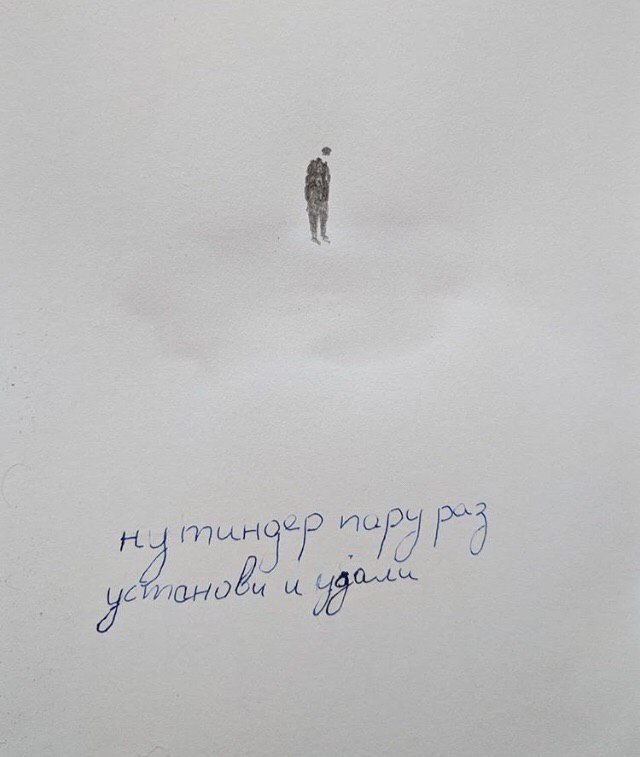 ну тиндер пару раз
установи и удали